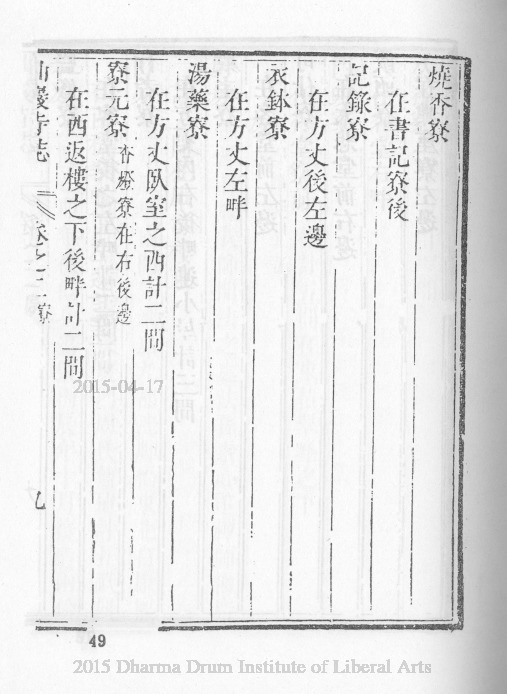 燒香寮
在書記寮後
記錄寮
在方丈後左邊
衣鉢寮
在方丈左畔
湯藥寮
在方丈臥室之西計二間
寮元寮 香燈寮在右後邊
在西返樓之下後畔計二間
寺志 卷之二寮 九
49
2015-04-17
2015 Dharma Drum Institute of Liberal Arts